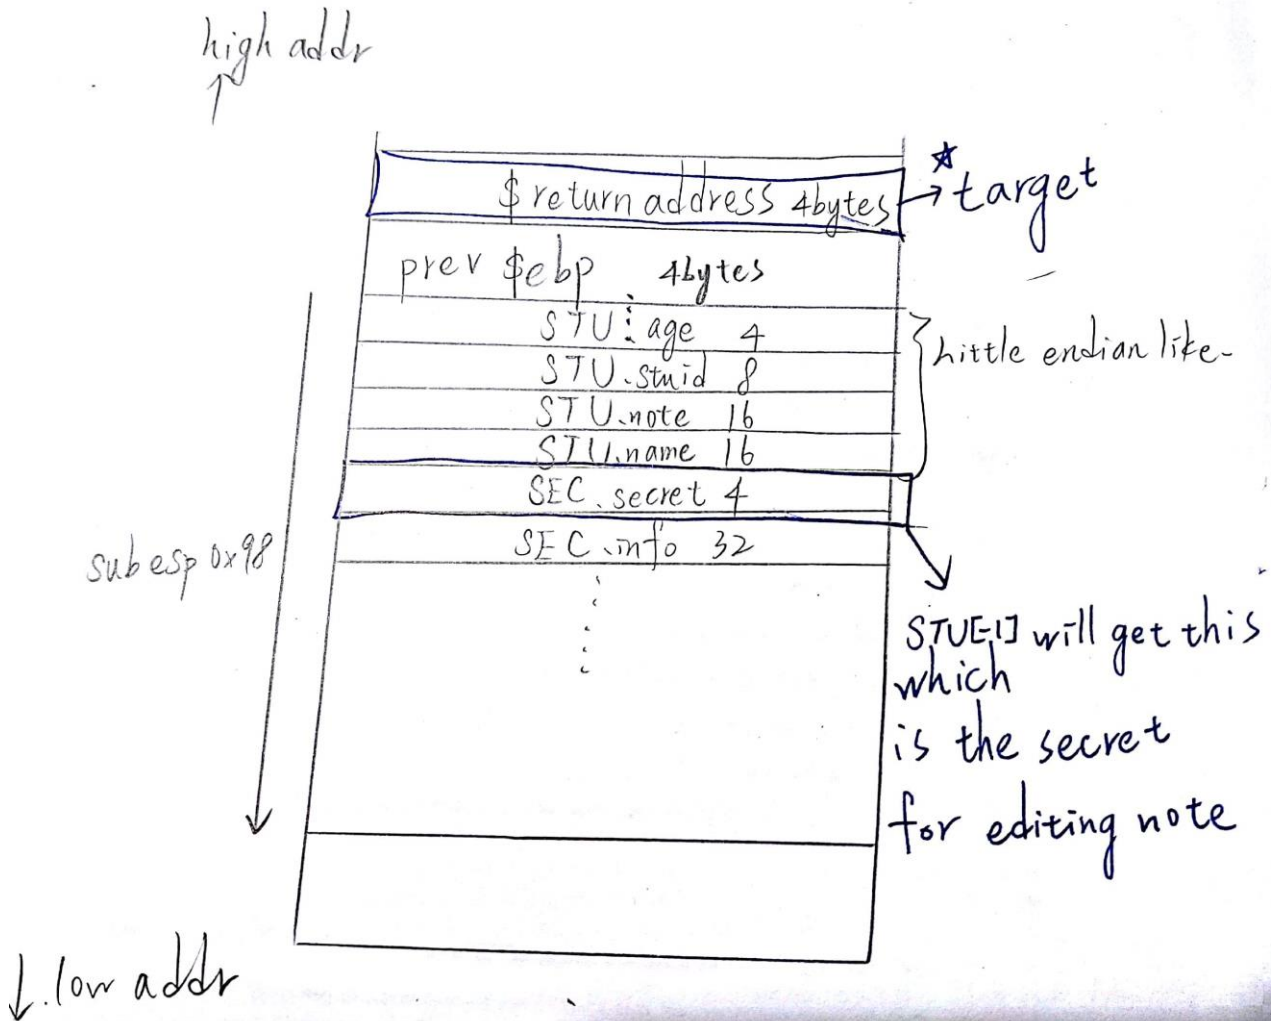 high addr
↑
$ return address 4bytes → ☆ target
prev $ebp 4bytes
STU age 4
STU.stuid 8
Little endian like
STU.note 16
STU.name 16
SEC.secret 4
SEC.info 32
sub esp 0x98
STU[-1] will get this
which
is the secret
for editing note
↓ low addr